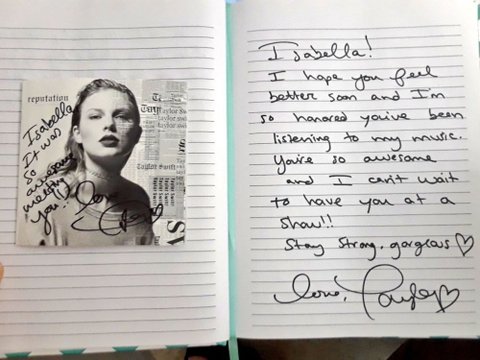 reputation
Isabella
So it was
awesome
meeting
you!!
love
Taylor Swift
Isabella!
I hope you feel
better soon and I'm
so honored you've been
listening to my music.
You're so awesome
and I can't wait
to have you at a
show!!
Stay strong, gorgeous
love, Taylor